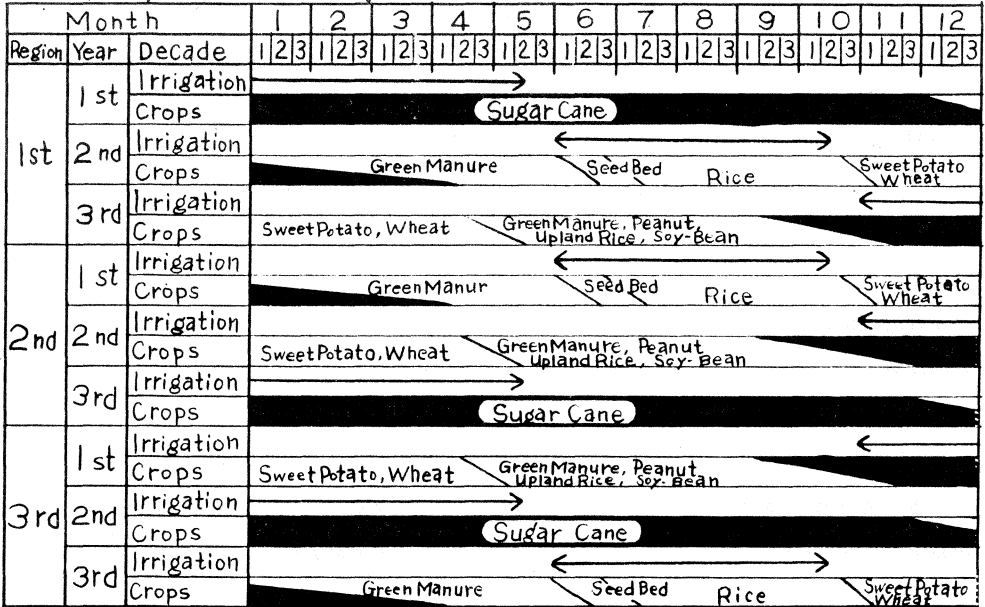 Month 1 2 3 4 5 6 7 8 9 10 11 12
Region Year Decade 1 2 3 1 2 3 1 2 3 1 2 3 1 2 3 1 2 3 1 2 3 1 2 3 1 2 3 1 2 3 1 2 3 1 2 3
1st
1st
Irrigation
Crops Sugar Cane
2nd
Irrigation
Crops Green Manure Seed Bed Rice Sweet Potato
Wheat
3rd
Irrigation
Crops Sweet Potato, Wheat Green Manure, Peanut,
Upland Rice, Soy-Bean
2nd
1st
Irrigation
Crops Green Manur Seed Bed Rice Sweet Potato
Wheat
2nd
Irrigation
Crops Sweet Potato, Wheat Green Manure, Peanut
Upland Rice, Soy-Bean
3rd
Irrigation
Crops Sugar Cane
3rd
1st
Irrigation
Crops Sweet Potato, Wheat Green Manure, Peanut
Upland Rice, Soy-Bean
2nd
Irrigation
Crops Sugar Cane
3rd
Irrigation
Crops Green Manure Seed Bed Rice Sweet Potato
Wheat